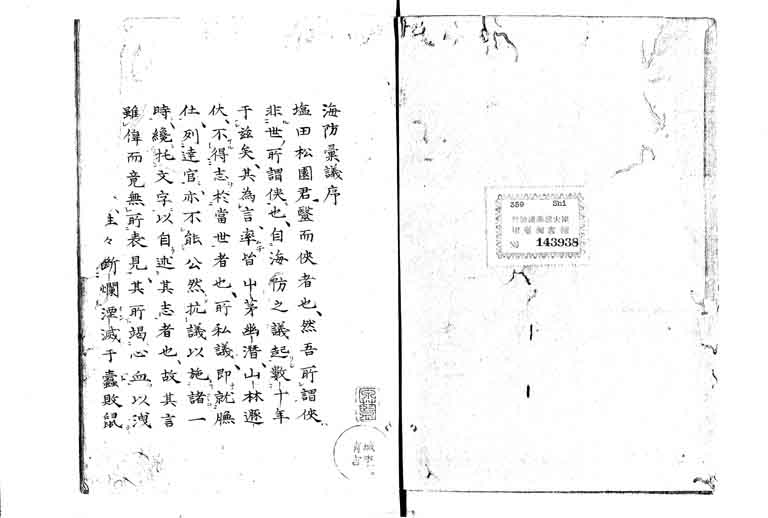 海防彙議序
塩田松園君、毉而俠者也、然吾所謂俠
非世所謂俠也、自海防之議起數十年
于茲矣、其為言、率皆屮茅幽潜、山林遯
伏、不得志於當世者也、所私議、即就膴
仕、列達官、亦不能公然抗議以施諸一
時、纔托文字、以自述其志者也、故其言
雖偉而竟無所表見、其所竭心血以洩
徃々斷爛湮滅于蠧敗鼠
359 Shi
№ 143938